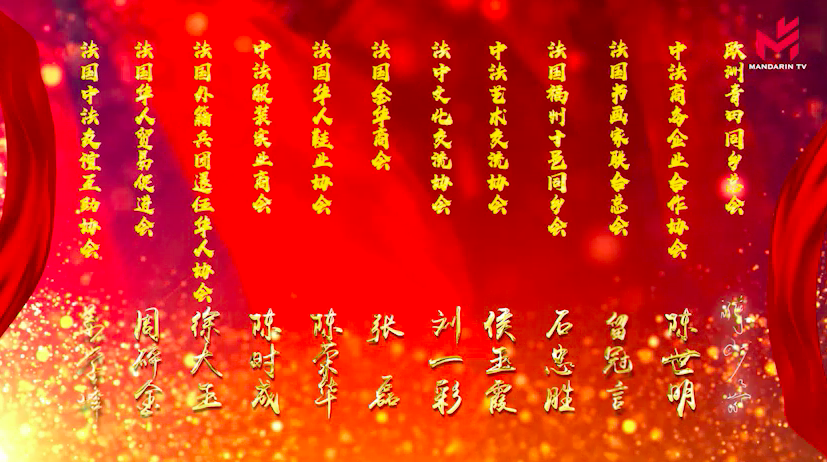 MANDARIN TV
欧洲青田同乡总会
中法商务企业合作协会
陈世明
法国书画家联合总会
留冠言
法国福州十邑同乡会
石忠胜
中法艺术交流协会
侯玉霞
法中文化交流协会
刘一彩
法国金华商会
张磊
法国华人鞋业协会
陈荣华
中法服装实业商会
陈时成
法国外籍兵团退伍华人协会
徐大玉
法国华人贸易促进会
周碎金
法国中法友谊互助协会